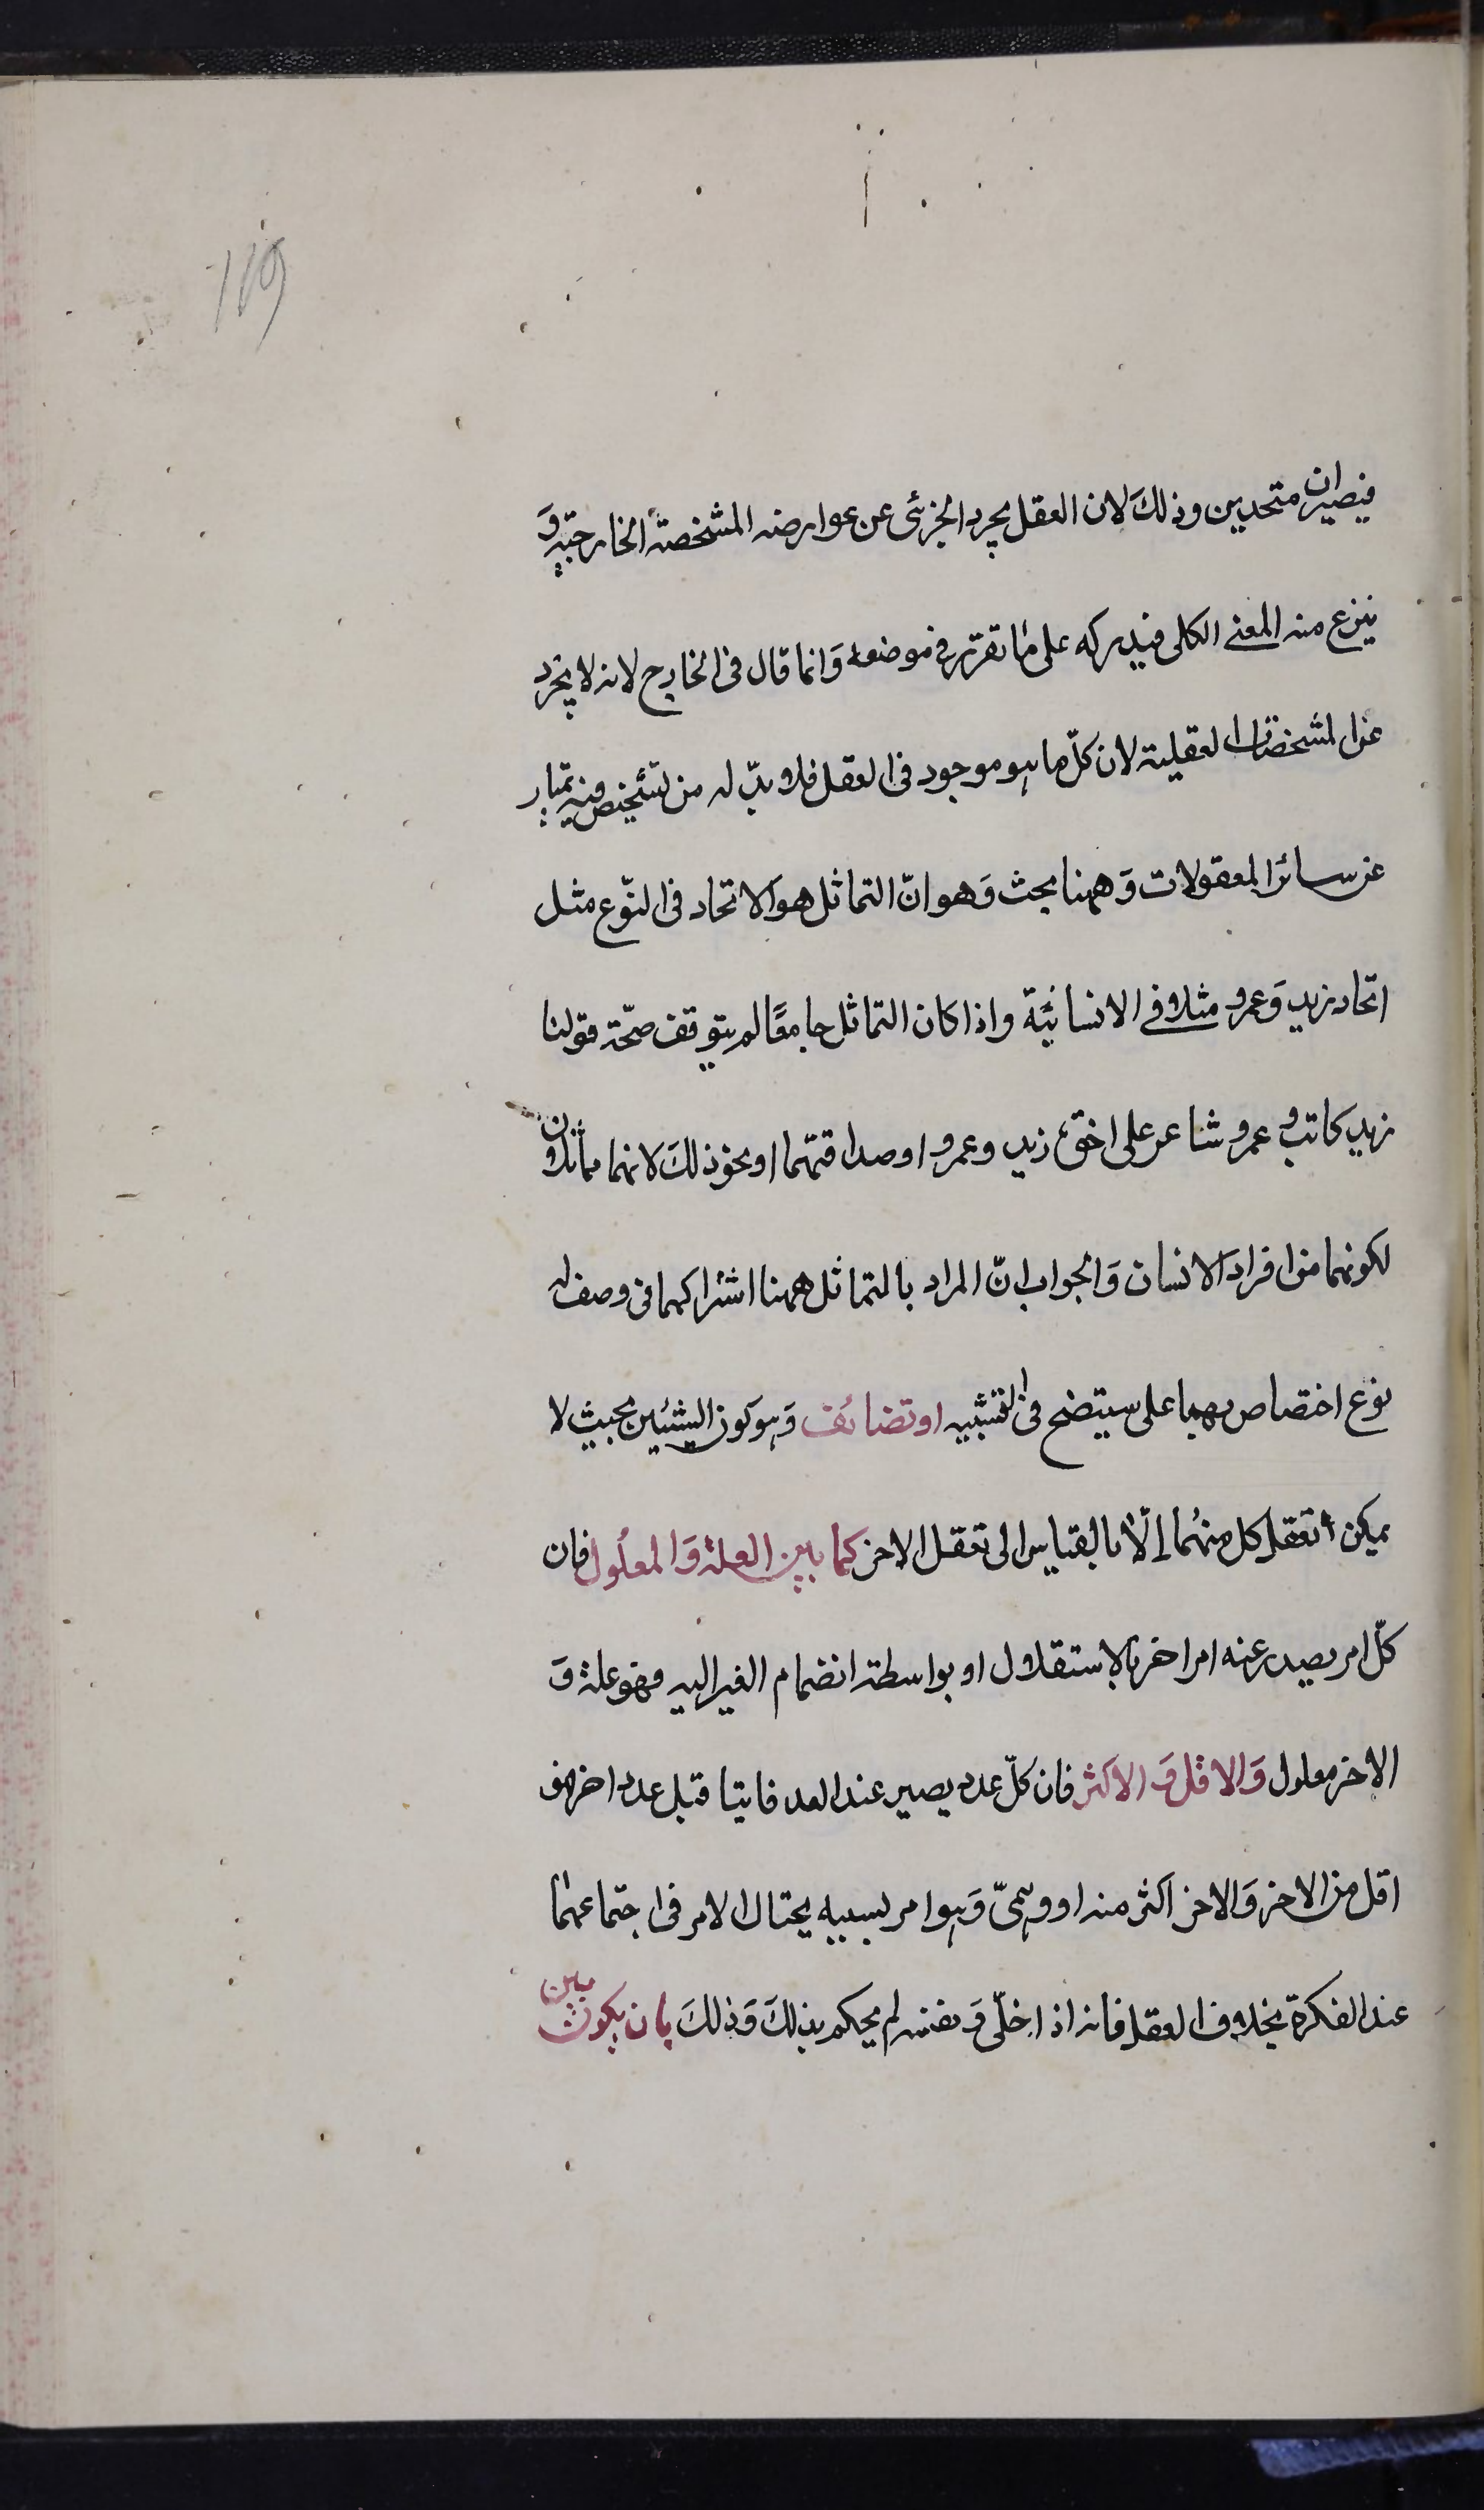 119
فيصيران متحدين وذلك لان العقل يجرد الجزئى عن عوارضه المشخصة الخارجية و
ينزع منه المعنى الكلى فيدركه على ما تقرر فى موضعه وَانما قال فى الخارج لانه لا يجرد
عن المشخصات العقلية لان كلّ ما هو موجود فى العقل فلا بدّ له من تشخص فيه يمتاز
عن سائر المعقولات وَههنا بحث وَهو انّ التماثل هو الاتحاد فى النّوع مثل
اتحاد زيد وَعمرو مثلا فى الانسانيّة واذا كان التماثل جامعًا لم يتوقف صحّة قولنا
زيد كاتب و عمرو شاعر على اخوّة زيد وعمرو او صداقتهما او نحو ذلكَ لانهما مماثلان
لكونهما من افراد الانسان وَالجواب انّ المراد بالتماثل ههنا اشتراكهما فى وصف له
نوع اختصاص بهما على سيتضح فى التشبيه او تضائف وَهو كون الشيئين بحيث لا
يمكن تعقل كل منهُما إلّا بالقياس الى تعقل الاخر كما بين العلة وَالمعلُول فان
كلّ امر يصدر عنه امر اخر بالاستقلال او بواسطة انضمام الغير اليه فهو علة وَ
الاخر معلول وَالاقل وَ الاكثر فان كلّ عدد يصير عند العد فانيا قبل عدد اخر فهو
اقل من الاخر وَالاخر اكثر منه او وهمىّ وَهو امر بسببه يحتال الامر فى اجتماعهما
عند الفكرة بخلاف العقل فانه اذا خلّى وَ نفسه لم يحكم بذلكَ وَذلكَ بان يكون بين